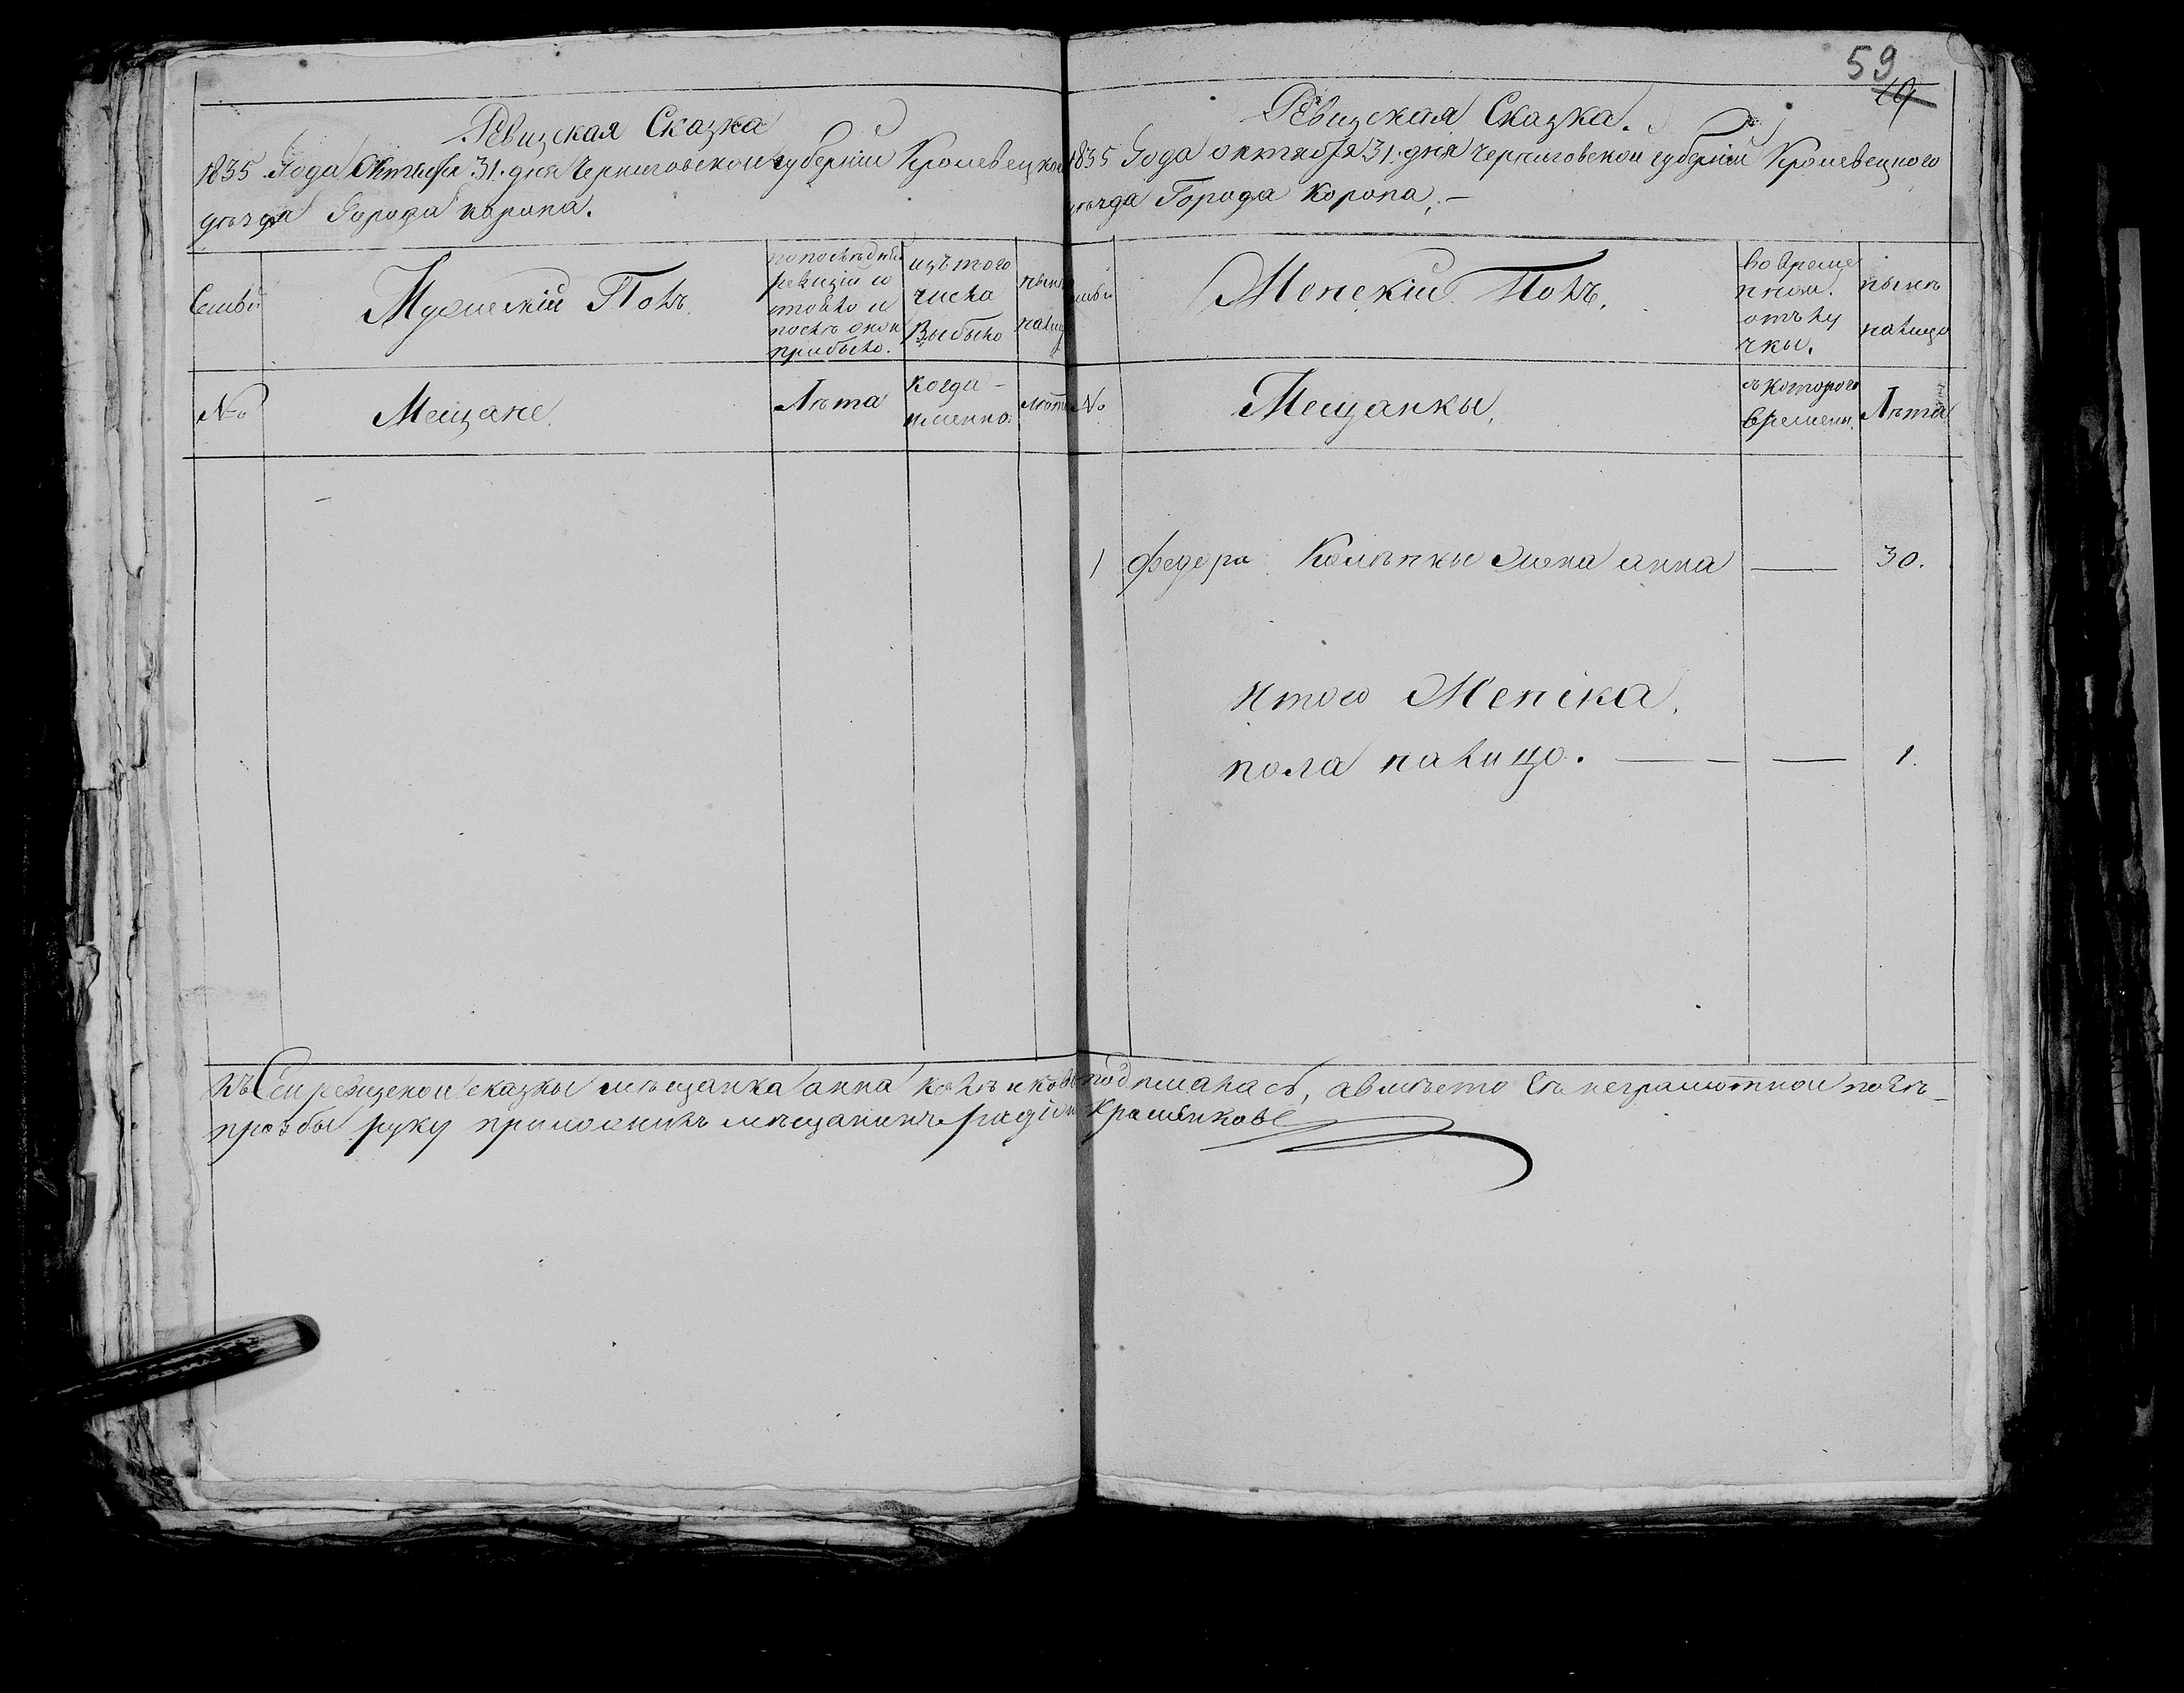 59
19
Ревизская Сказка
1835 Года Октября 31. дня Черниговской губернии Кролевецкого
уезда Города Коропа.
Семьи
Мужескій Полъ.
по последней
ревизіи со
стояло и
после онои
прибыло.
изъ того
числа
Выбыло
ныне
налицо
№
Мещане.
Лѣта
когда
именно.
лѣта
Ревизская Сказка.
1835 Года октября 31. дня черниговской губерніи Кролевецкого
уезда Города Коропа. —
Семьи
Женскій Полъ.
во време
нной
отълу
чки.
нынѣ
налицо
№
Мещанки.
съ которого
времени.
Лѣта
1 федора жена анна — 30.
Итого Женска
пола налицо. — — 1.
Къ Сей ревизской сказки мѣщанка анна подписалась, авмѣсто Еѣ неграмотной поеѣ
прозбы руку приложилъ мѣщанинъ радіон